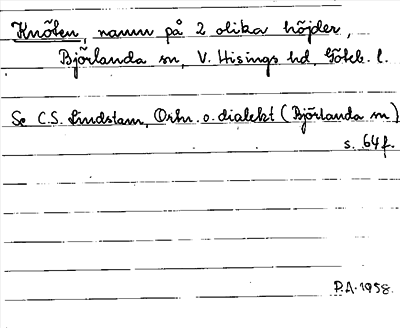 Knõten, namn på 2 olika höjder,
Björlanda sn, V. Hisings hd, Göteb. l.
Se C.S. Lindstam, Ortn. o. dialekt (Björlanda sn)
s. 64f.
P.A. 1958.